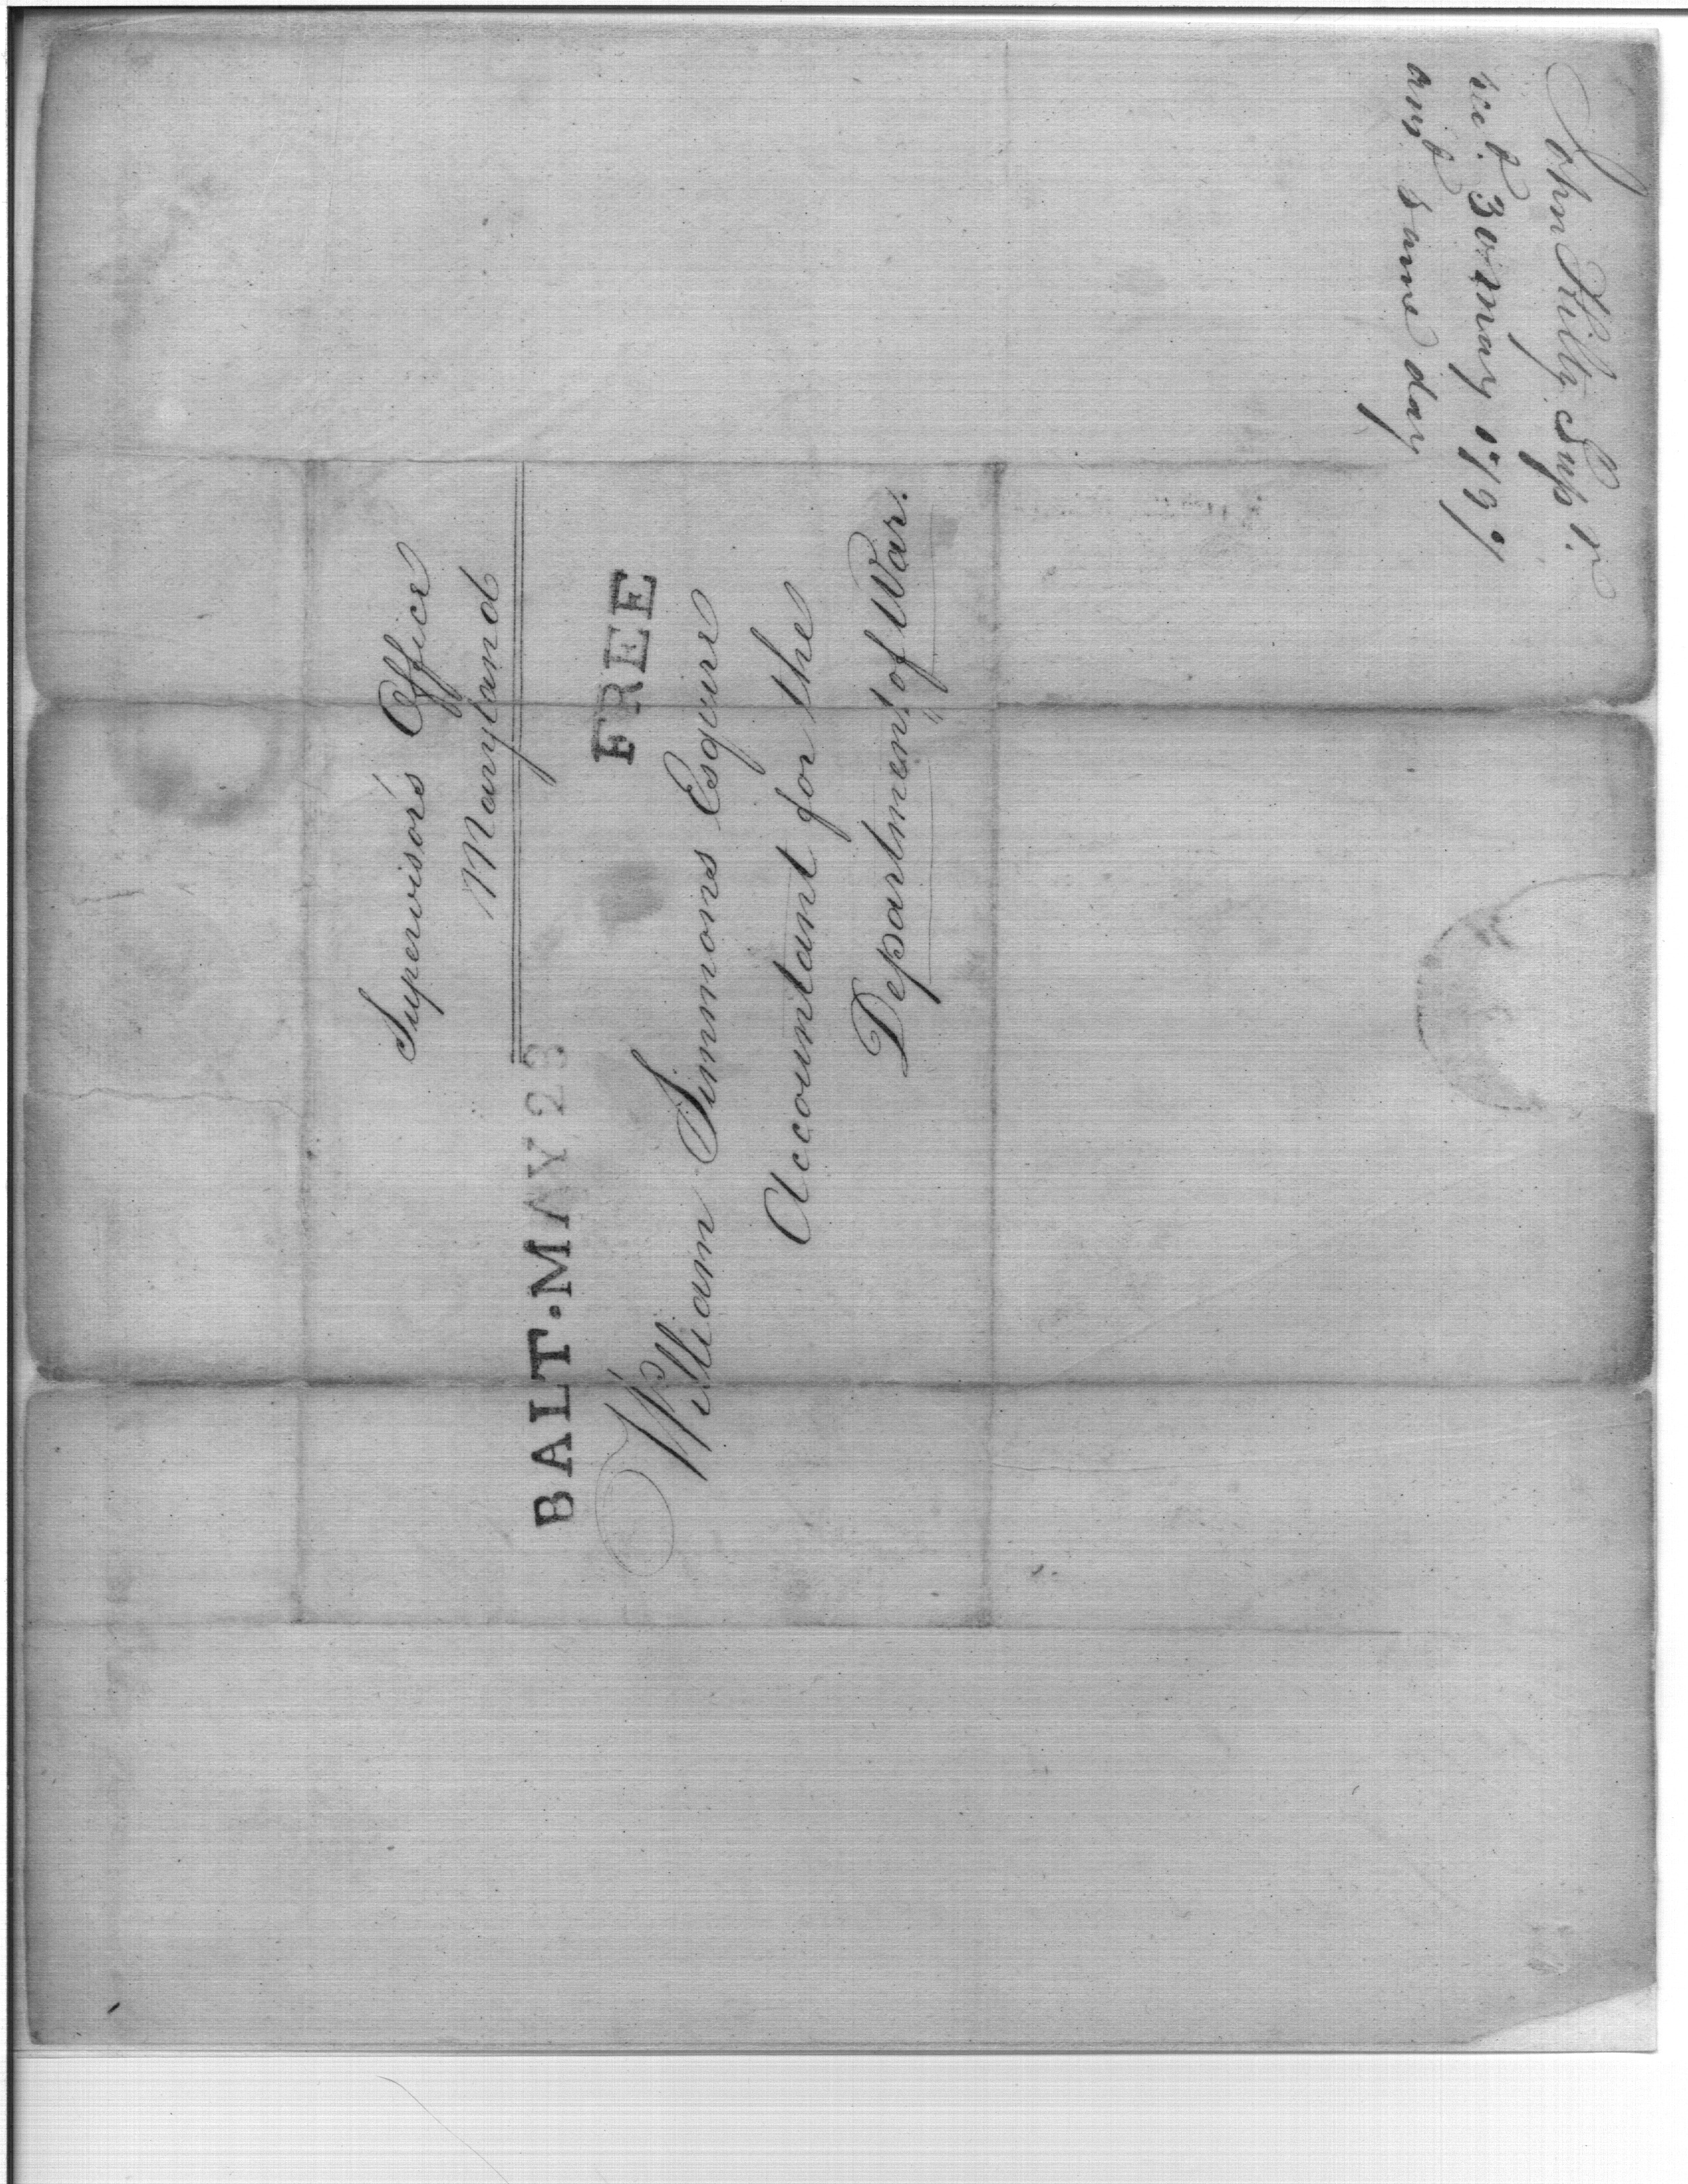 Supervisor's Office
Maryland
BALT·MAY 23
FREE
William Simmons Esquire
Accountant for the
Department of War.
John Kilty Supr.
recd. 30 may 1799
ansd. same day